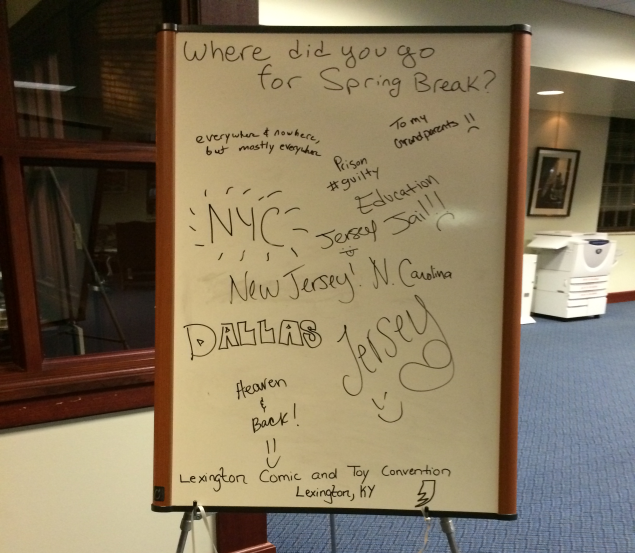 Where did you go
for Spring Break?
everywhere & nowhere,
but mostly everywhere
To my
Grandparents!!
Prison
#guilty
Education
NYC
Jersey Jail!!
New Jersey!
N. Carolina
DALLAS
Jersey
Heaven
&
Back!
Lexington Comic and Toy Convention
Lexington, KY